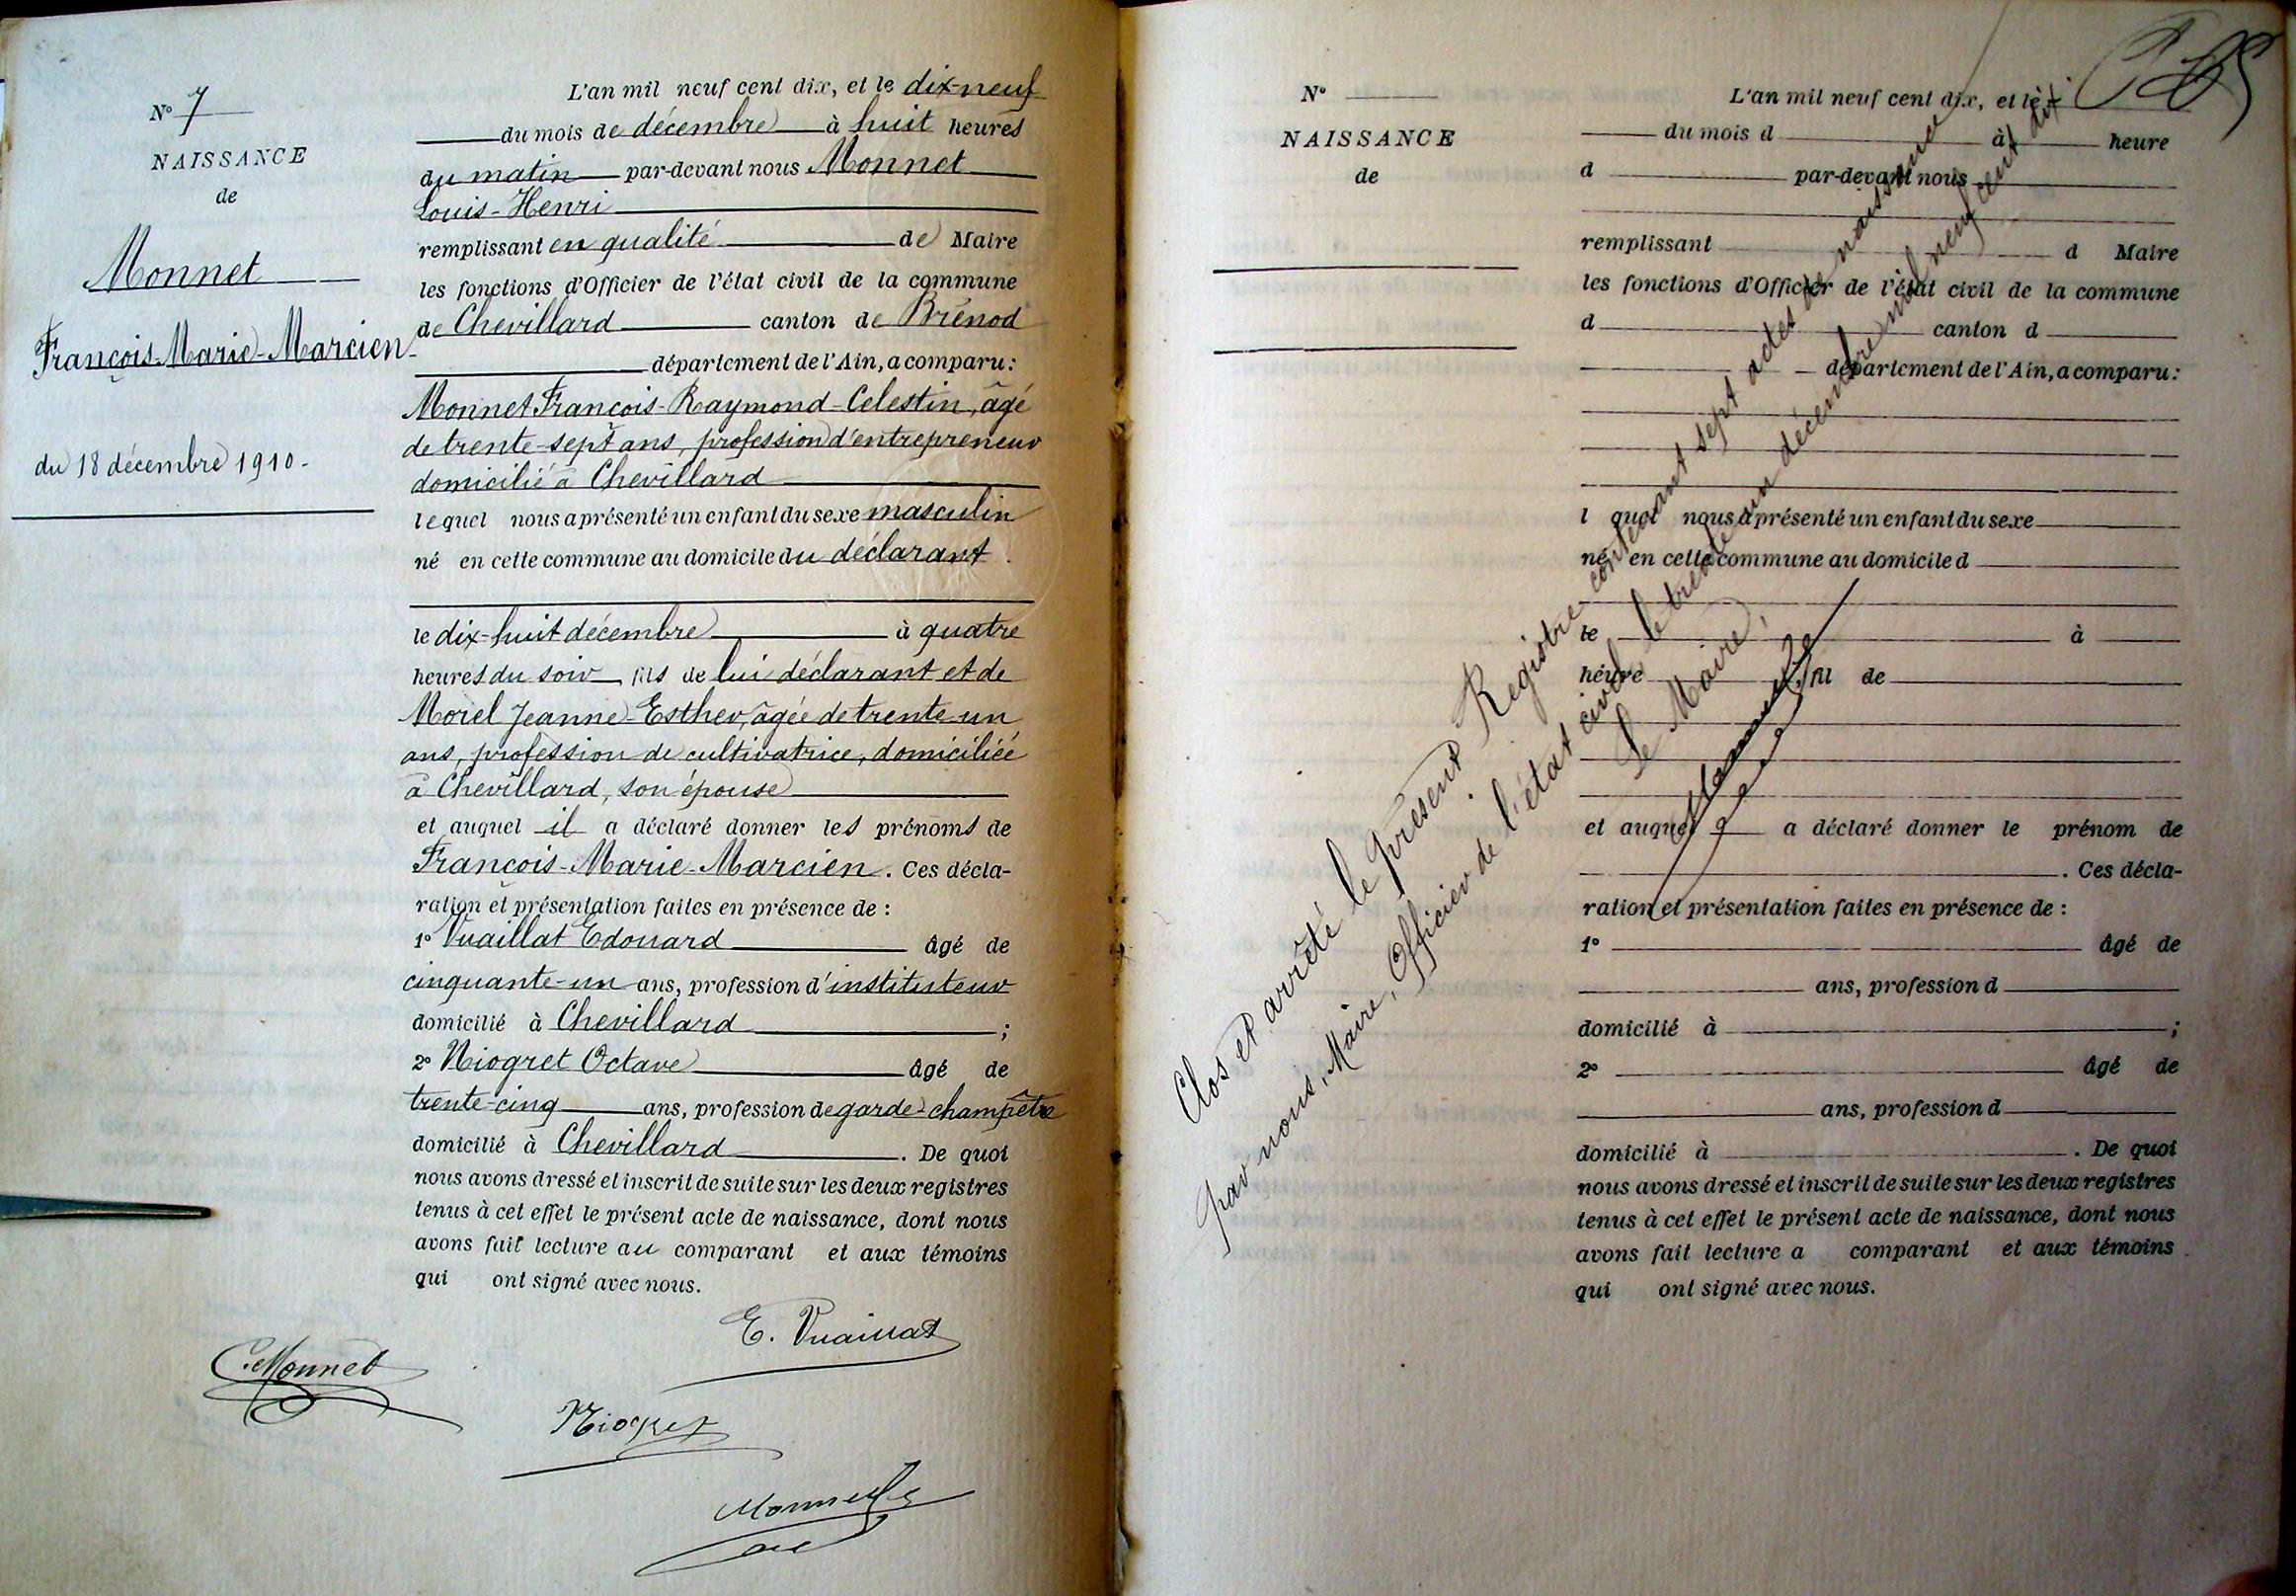 N° 7
NAISSANCE
de
Monnet
François-Marie-Marcien
du 18 décembre 1910.
L'an mil neuf cent dix, et le dix-neuf
du mois de décembre à huit heures
du matin par-devant nous Monnet
Louis-Henri
remplissant en qualité de Maire
les fonctions d'Officier de l'état civil de la commune
de Chevillard canton de Brénod
département de l'Ain, a comparu :
Monnet François-Raymond-Celestin, âgé
de trente-sept ans, profession d'entrepreneur
domicilié à Chevillard
lequel nous a présenté un enfant du sexe masculin
né en cette commune au domicile du déclarant.
le dix-huit décembre à quatre
heures du soir fils de lui déclarant et de
Morel Jeanne-Esther, âgée de trente-un
ans, profession de cultivatrice, domiciliée
à Chevillard, son épouse
et auquel il a déclaré donner les prénoms de
François-Marie-Marcien. Ces décla-
ration et présentation faites en présence de :
1° Vuaillat Edouard âgé de
cinquante-un ans, profession d'instituteur
domicilié à Chevillard ;
2° Niogret Octave âgé de
trente-cinq ans, profession de garde-champêtre
domicilié à Chevillard. De quoi
nous avons dressé et inscrit de suite sur les deux registres
tenus à cet effet le présent acte de naissance, dont nous
avons fait lecture au comparant et aux témoins
qui ont signé avec nous.
E. Vuaillat
C. Monnet
Niogret
Monnet
N°
NAISSANCE
de
L'an mil neuf cent dix, et le
du mois d à heure
d par-devant nous
remplissant d Maire
les fonctions d'Officier de l'état civil de la commune
d canton d
département de l'Ain, a comparu :
l quel nous a présenté un enfant du sexe
né en cette commune au domicile d
le à
heure fil de
et auquel a déclaré donner le prénom de
. Ces décla-
ration et présentation faites en présence de :
1° âgé de
ans, profession d
domicilié à ;
2° âgé de
ans, profession d
domicilié à . De quoi
nous avons dressé et inscrit de suite sur les deux registres
tenus à cet effet le présent acte de naissance, dont nous
avons fait lecture a comparant et aux témoins
qui ont signé avec nous.
Clos et arrêté le présent Registre contenant sept actes de naissance
par nous, Maire, Officier de l'état civil le trente un décembre mil neuf cent dix.
Le Maire,